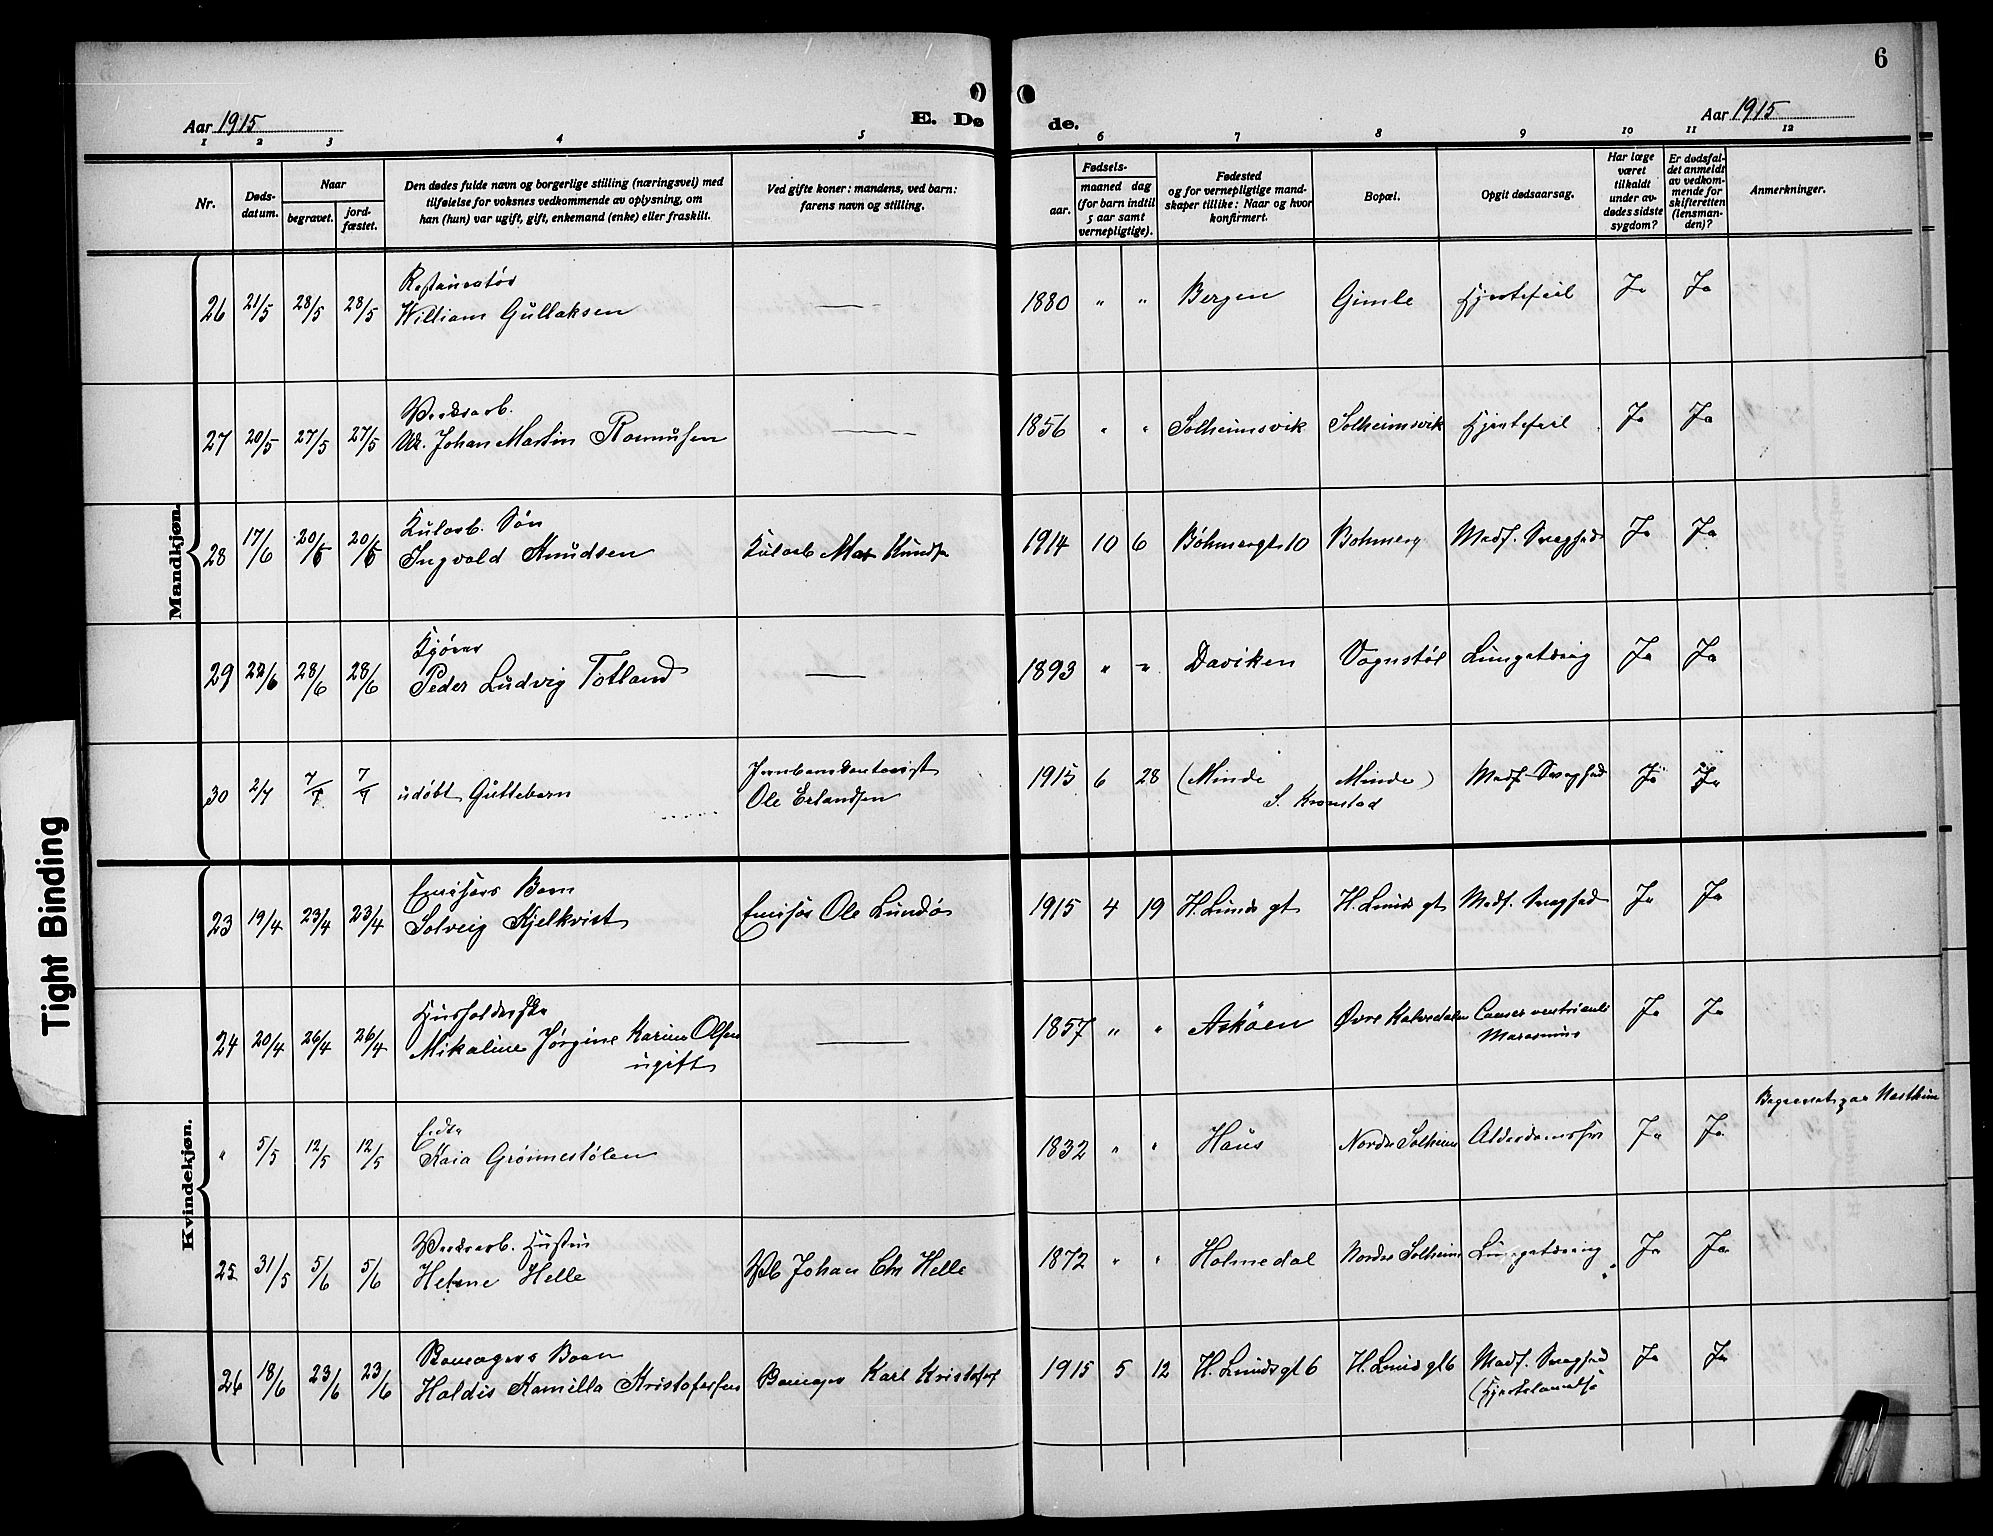 6
Aar 1915
E. Dø
de.
Aar 1915
1 2 3 4 5 6 7 8 9 10 11 12
Nr.
Døds-
datum.
Naar
begravet.
jord-
fæstet.
Den dødes fulde navn og borgerlige stilling (næringsvei) med
tilføielse for voksnes vedkommende av oplysning, om
han (hun) var ugift, gift, enkemand (enke) eller fraskilt.
Ved gifte koner: mandens, ved barn:
farens navn og stilling.
Fødsels-
aar.
maaned dag
(for barn indtil
5 aar samt
vernepligtige).
Fødested
og for vernepligtige mand-
skaper tillike: Naar og hvor
konfirmert.
Bopæl.
Opgit dødsaarsag.
Har læge
været
tilkaldt
under av-
dødes sidste
sygdom?
Er dødsfal-
det anmeldt
av vedkom-
mende for
skifteretten
(lensman-
den)?
Anmerkninger.
Mandkjøn.
Restauratør
26 21/5 28/5 28/5 William Gullaksen — 1880 " " Bergen Gimle Hjertefeil Ja Ja
Verksarb.
27 20/5 27/5 27/5 Johan Martin Rasmussen — 1856 " " Solheimsvik Solheimsvik Hjertefeil Ja Ja
Kularb. Søn
28 17/6 20/6 20/6 Ingvald Knudsen Kularb 1914 10 6 Bøhmergt 10 Bohmerg Medf. Svaghed Ja Ja
Kjører
29 22/6 28/6 28/6 Peder Ludvig Totland — 1893 " " Daviken Vognstøl Lungetæring Ja Ja
Jernbanekontorist
30 2/7 7/7 7/7 udøbt Guttebarn Ole Erlandsen 1915 6 28 (Minde Minde) Medf. Svaghed Ja Ja
S. Kronstad
Kvindekjøn.
Emissærs Barn
23 19/4 23/4 23/4 Solveig Kjelkvist Emissær Ole Lundø 1915 4 19 H. Lunds gt H. Lunds gt Medf. Svaghed Ja Ja
Husholderske
24 20/4 26/4 26/4 Mikaline Jørgine Karine Olsen — 1857 " " Askøen Øvre Kalvedalen Cancer ventriculi Ja Ja
ugift
Marasmus
Enke
" 5/5 12/5 12/5 Kaia Grønnestølen 1832 " " Haus Nordre Solheim Alderdomssv Ja Ja
Verksarb. Hustru
25 31/5 5/6 5/6 Helene Helle Vb Johan Chr Helle 1872 " " Holmedal Nordre Solheim Lungetæring Ja Ja
Barn
26 18/6 23/6 23/6 Haldis Kamilla Kristofersen Karl Kristofers 1915 5 12 H. Lunds gt 6 H. Lunds gt 6 Medf. Svaghed Ja Ja
Tight Binding